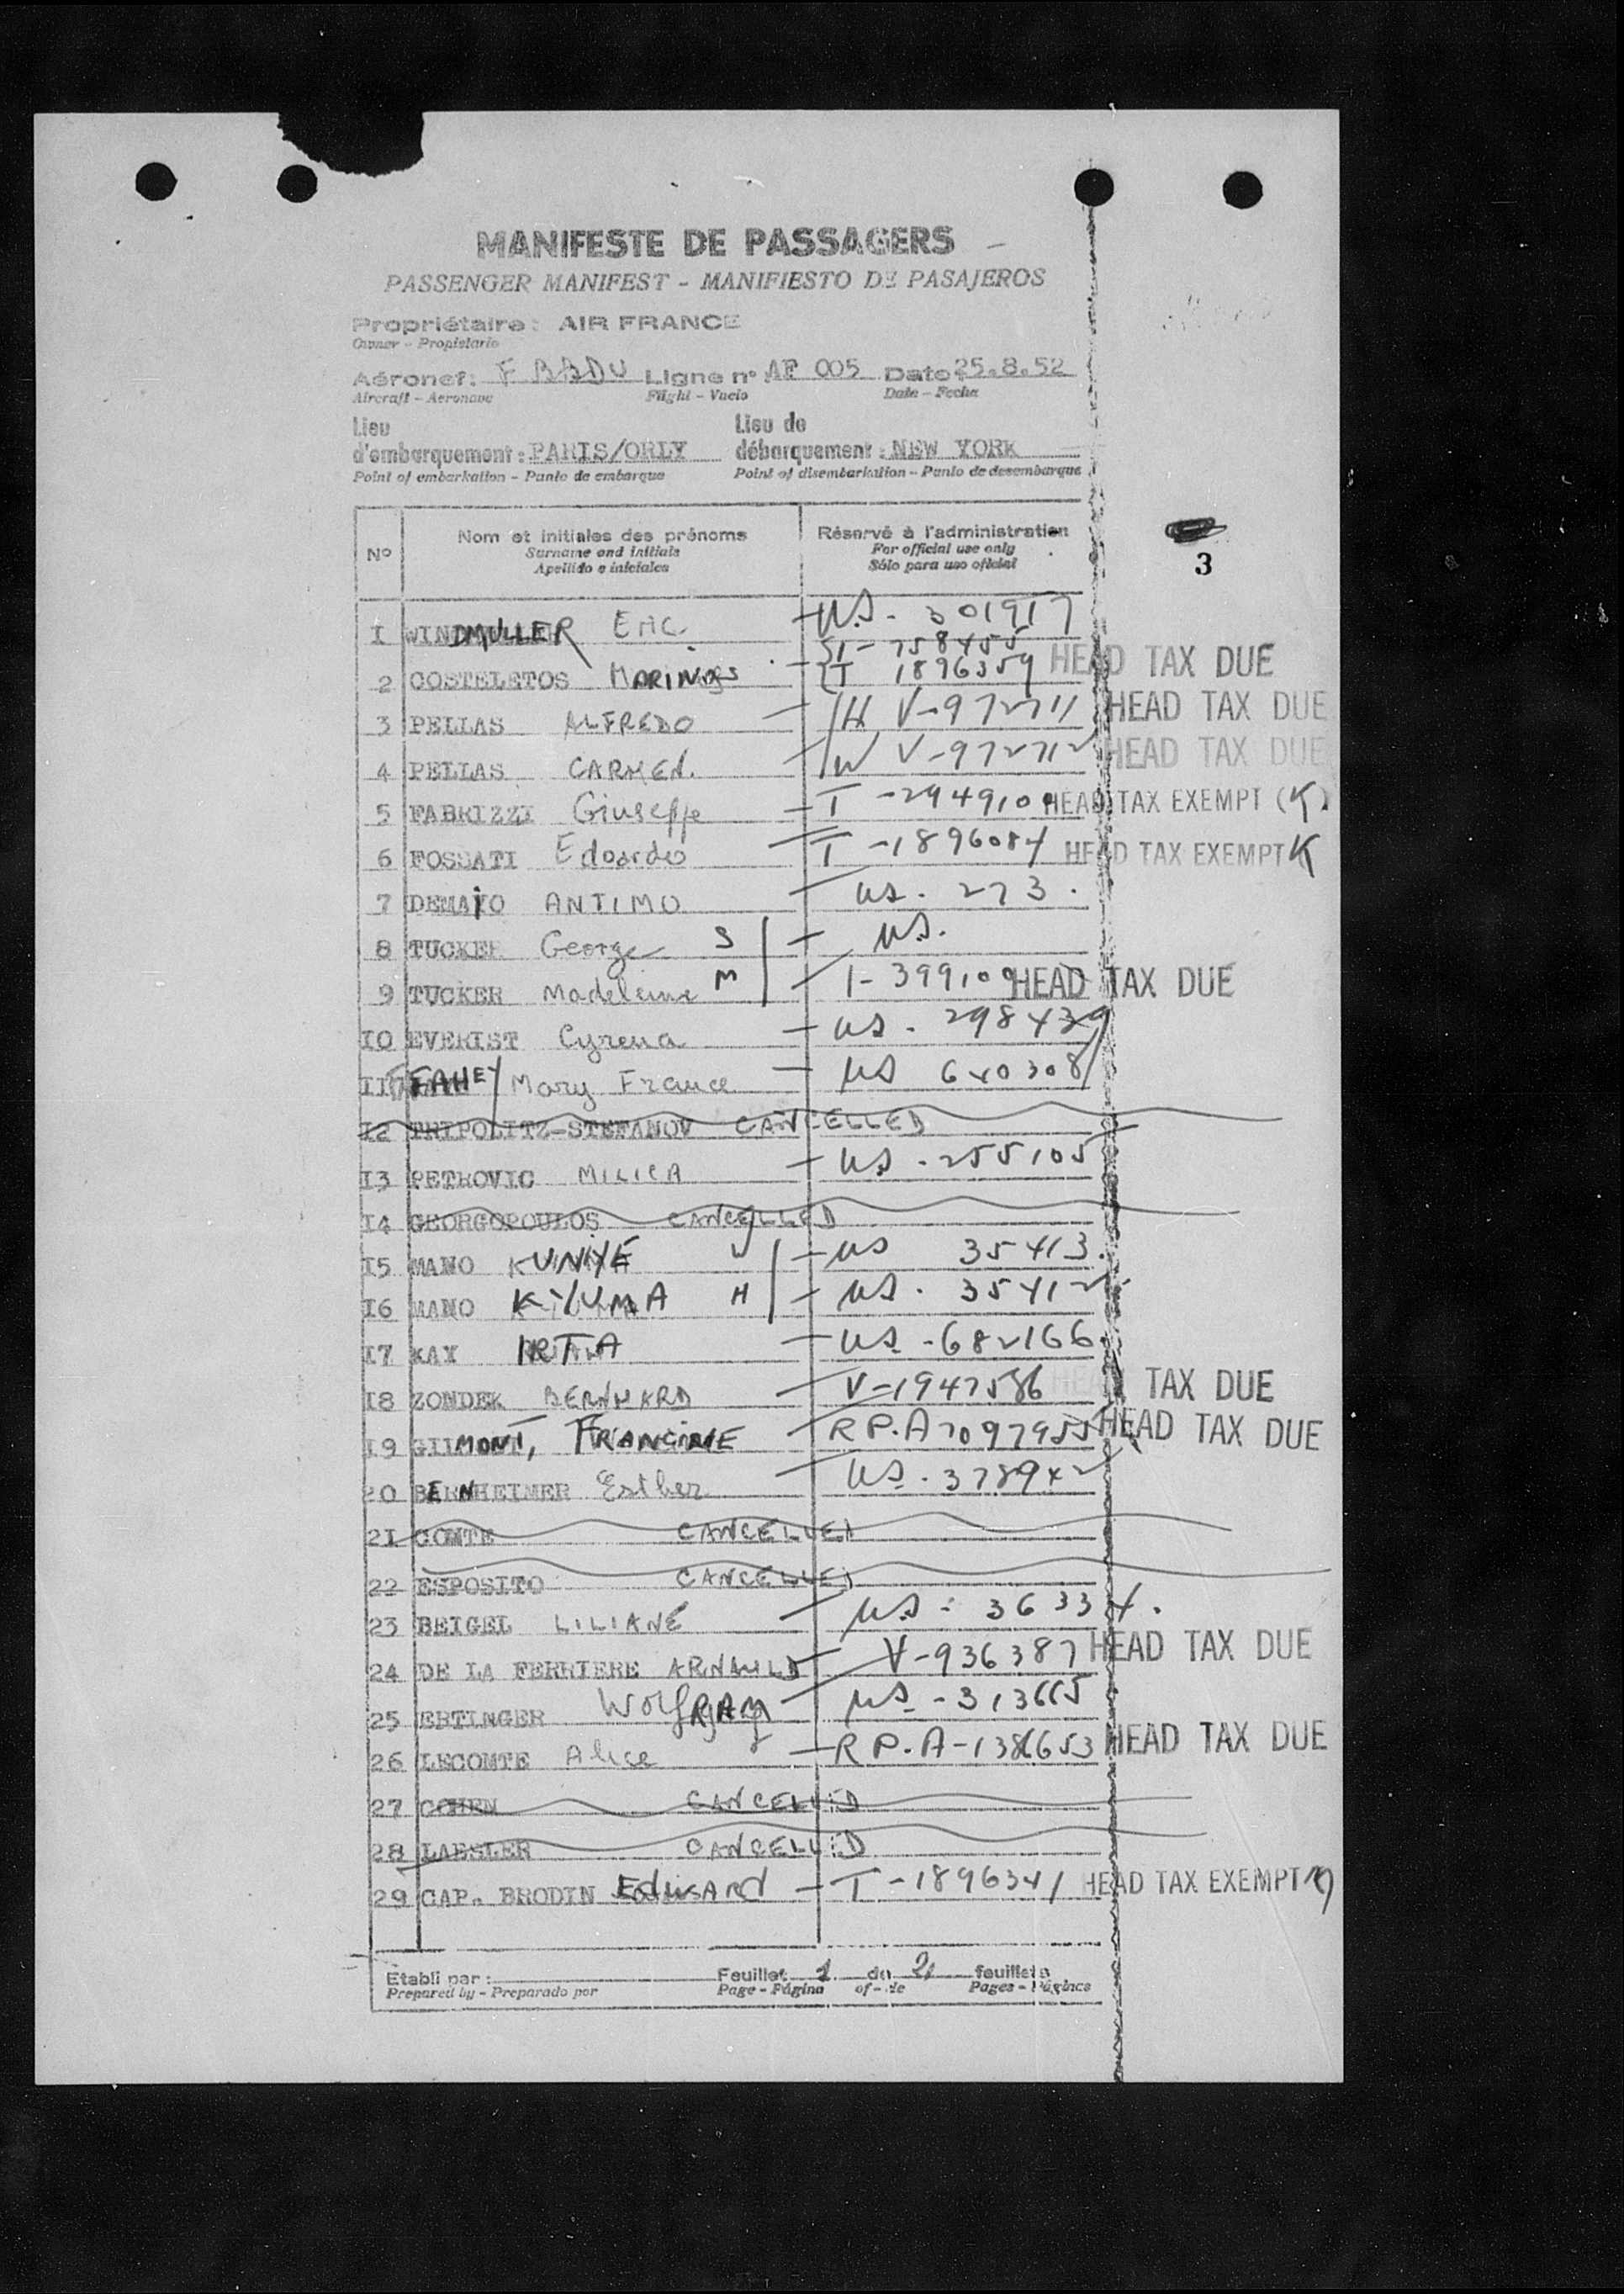 MANIFESTE DE PASSAGERS
PASSENGER MANIFEST - MANIFIESTO DE PASAJEROS
Propriétaire: AIR FRANCE
Owner - Propietario
Aéronef: F Ligne n° AF 005 Date 25.8.52
Aircraft - Aeronave Flight - Vuelo Date - Fecha
Lieu d'embarquement: PARIS/ORLY Lieu de débarquement: NEW YORK
Point of embarkation - Punto de embarque Point of disembarkation - Punto de desembarque
N° Nom et initiales des prénoms Réservé à l'administration
Surname and initials For official use only
Apellido e iniciales Sólo para uso oficial
3
1 WINDMULLER U.S. - 301917
T - 758455
2 COSTELETOS T 1896359 HEAD TAX DUE
3 PELLAS ALFREDO H V-972711 HEAD TAX DUE
4 PELLAS CARMEN. W V-972712 HEAD TAX DUE
5 FABRIZZI Giuseppe T -294910 HEAD TAX EXEMPT (K)
6 FOSSATI Edoardo T -1896084 HEAD TAX EXEMPT K
7 DEMAIO ANTIMO US. 273.
8 TUCKER George S U.S.
9 TUCKER Madeleine M I-399100 HEAD TAX DUE
10 EVERIST Cyrena US - 298439
11 FAHEY Mary France US 640308
12 TRIPOLITZ-STEFANOV CANCELLED
13 PETROVIC MILICA US - 255105
14 GEORGOPOULOS CANCELLED
15 MANO KUNIYE W US 35413.
16 MANO KIYUMA H US. 35412
17 KAY US - 682166
18 ZONDEK BERNHARD V-1947586 HEAD TAX DUE
19 GILMONT, FRANCINE R P. A 7097955 HEAD TAX DUE
20 BERNHEIMER Esther US. 378942
21 COMTE CANCELLED
22 ESPOSITO CANCELLED
23 BEIGEL LILIANE US - 36334.
24 DE LA FERRIERE V-936387 HEAD TAX DUE
25 EBTINGER WolfRAM US - 313665
26 LECOMTE Alice R P. A - 1386653 HEAD TAX DUE
27 COHEN CANCELLED
28 LAESLER CANCELLED
29 CAP. BRODIN EDWARD T -1896341 HEAD TAX EXEMPT
Etabli par: Feuillet 1 de 2 feuillets
Prepared by - Preparado por Page - Página of - de Pages - Páginas